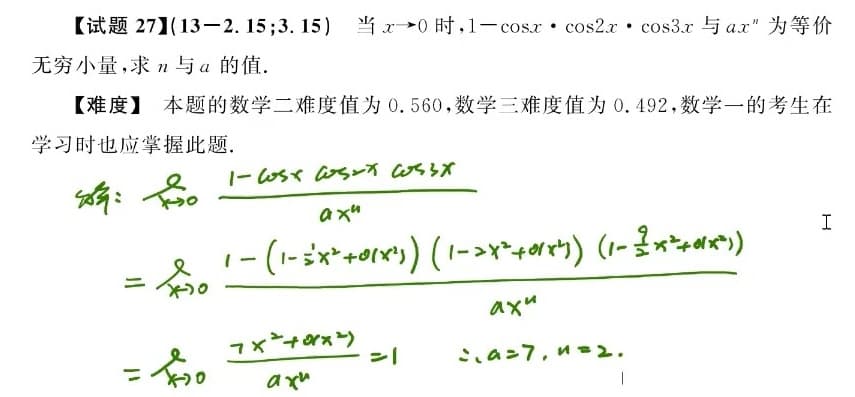 【试题 27】(13－2.15;3.15) 当 x→0 时,1－cosx·cos2x·cos3x 与 axⁿ 为等价
无穷小量,求 n 与 a 的值.
【难度】 本题的数学二难度值为 0.560,数学三难度值为 0.492,数学一的考生在
学习时也应掌握此题.
解: lim x→0 (1－cosx cos2x cos3x)/(axⁿ)
= lim x→0 (1－(1－½x²+o(x²))(1－2x²+o(x²))(1－9/2x²+o(x²)))/(axⁿ)
= lim x→0 (7x²+o(x²))/(axⁿ) =1 ∴a=7, n=2.